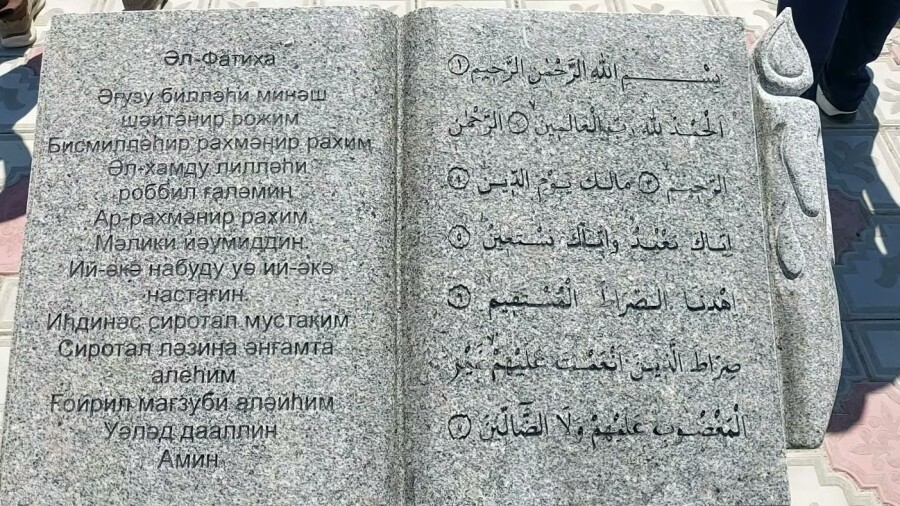 Әл-Фатиха
Әғузу билләһи минәш
шәйтәнир рожим
Бисмилләһир рахмәнир рахим
Әл-хамду лилләһи
роббил ғаләмин
Ар-рахмәнир рахим.
Мәлики йәумиддин.
Ий-әкә набуду уә ий-әкә
настағин.
Иһдинәс сиротал мустақим
Сиротал ләзина әнғамта
алеһим
Ғойрил мағзуби аләйһим
Уәләд дааллин
Амин
بِسْمِ اللهِ الرَّحْمٰنِ الرَّحِيمِ ①
الْحَمْدُ لِلهِ رَبِّ الْعَالَمِينَ ② الرَّحْمٰنِ
الرَّحِيمِ ③ مَالِكِ يَوْمِ الدِّينِ ④
اِيَّاكَ نَعْبُدُ وَاِيَّاكَ نَسْتَعِينُ ⑤
اِهْدِنَا الصِّرَاطَ الْمُسْتَقِيمَ ⑥
صِرَاطَ الَّذِينَ اَنْعَمْتَ عَلَيْهِمْ غَيْرِ
الْمَغْضُوبِ عَلَيْهِمْ وَلَا الضَّالِّينَ ⑦